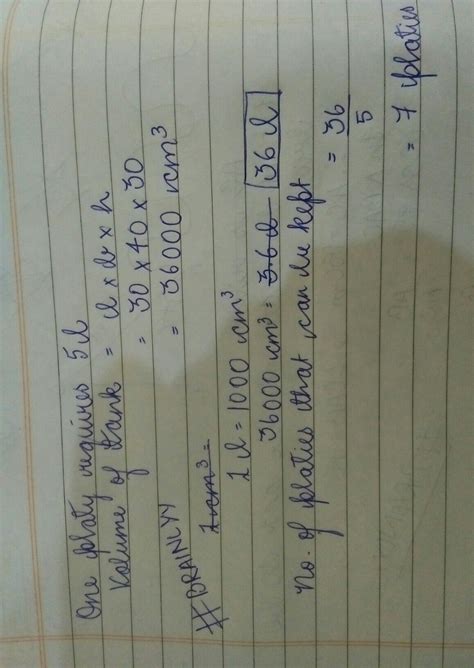 One platy requires 5l
Volume of tank = l x b x h
= 30 x 40 x 30
= 36000 cm³
#BRAINLYY
1 cm³ =
1 l = 1000 cm³
36000 cm³ = 3.6 l 36 l
No. of platies that can be kept
= 36/5
= 7 platies